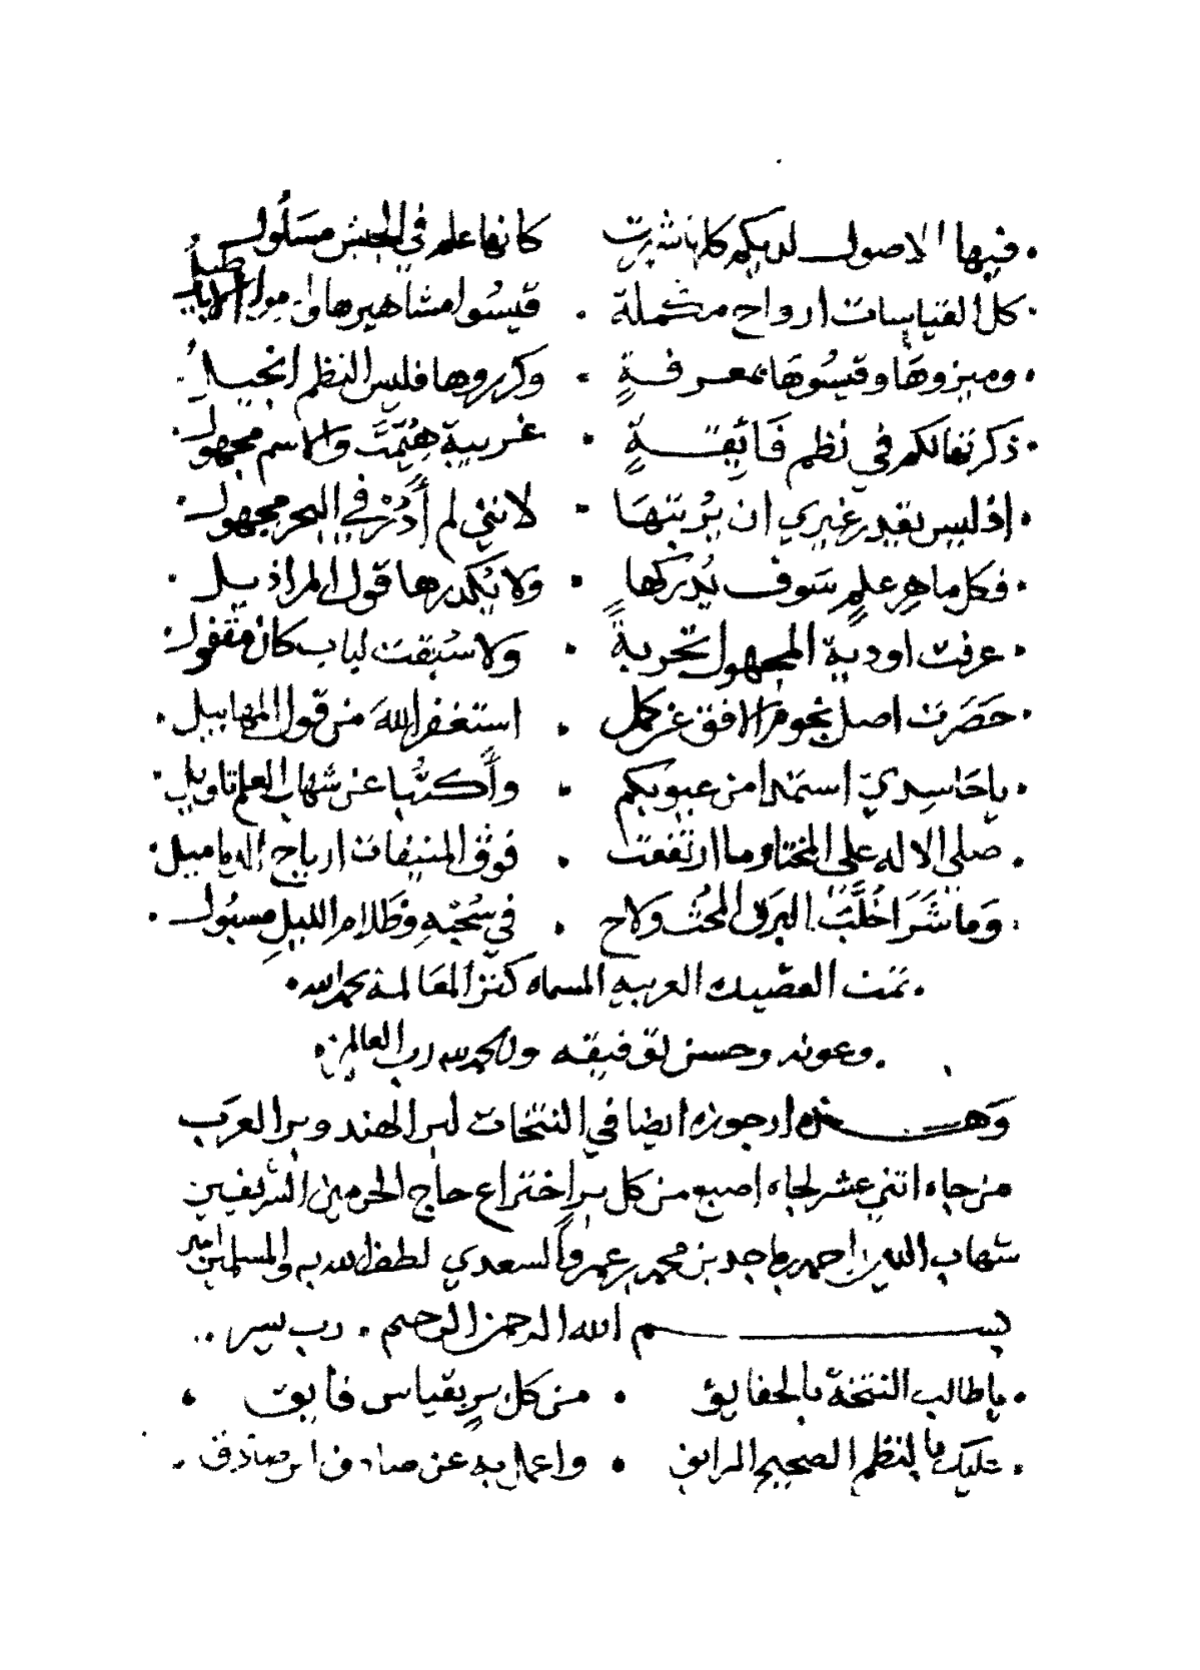 فيها الاصول لديكم كلما نشرت كانها علم في الجيش مسلول
كل القياسات ارواح مكملة قيسوا مشاهيرها
وميزوها وقيسوها بمعرفةٍ وكرروها فليس النظم انجيلُ
ذكرتها لكم في نظم فائقةٍ غريبة والاسم مجهول
اذ ليس يقدر غيري ان يرتبها لانني لم في البحر مجهول
فكل ماهرِ علمٍ سَوف يُدركها ولا يُكدرها قول
عرفت اودية المجهول تجربةً ولا سُبقت لباب كان مقفول
حَصَرت اصل نجوم الافق عن كمل استغفر اللهَ من قول المهابيل
يا حَاسِديّ من عيوبكم عن شهاب العلم تاويل
صلى الاله على المختار ما ارتفعت فوق المنيفات ارياح
وَما خُلَّبَ البرق ولاح في سُحْبهِ وظَلام الليلِ مسبُول
تمت القصيدة العربيه المسماه كنز المعالمة بحمد الله
وعونه وحسن توفيقه والحمد لله رب العالمين
وَهذه ارجوزه ايضا في النتخات لبر الهند وبر العرَب
من جاه اثني عشر لجاه اصبع من كل بر اختراع حاج الحرمين الشريفين
شهاب الدين احمد بن ماجد بن محمد بن عمرو السعدي لطف الله به والمسلمين امين
بسم الله الرحمن الرحيم رب يسر
يا طالب النتخة بالحقايق من كل برٍ بقياس فايق
عليك بالنظم الصحيح الرايق واعمل به عن صادق ابن صادق